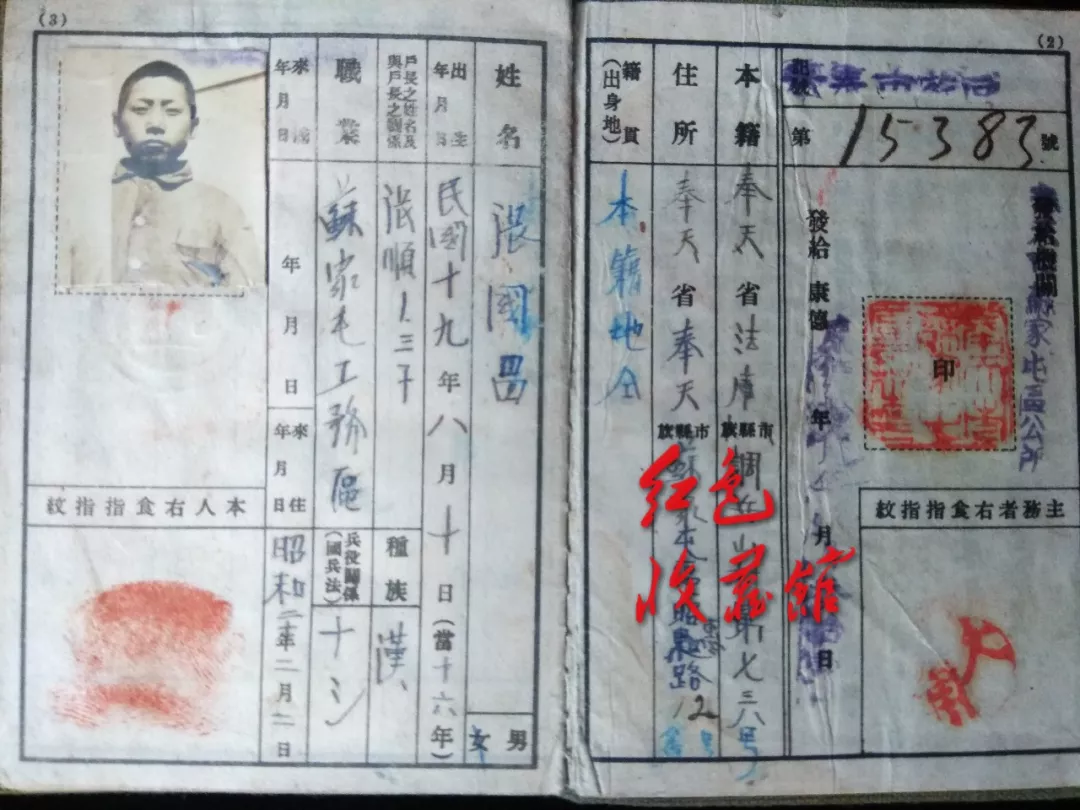 (2)
記號
第 15383 號
發給機關
蘇家屯區公所
印
發給 康德 年 月 日
主務者右食指指紋
本籍 奉天省法庫市縣旗 第七三八号
住所 奉天省奉天市縣旗 路12
籍貫(出身地) 本籍地仝
(3)
姓名 張國昌
男 女
出生年月日 民國十九年八月十日(當十六年)
戶長之姓名及與戶長之關係 張順 三子
種族 漢
職業 蘇家屯工務區
兵役關係(國兵法) ナシ
來滿年月日 年 月 日
來住年月日 昭和二十年二月二日
本人右食指指紋
红色
收藏馆